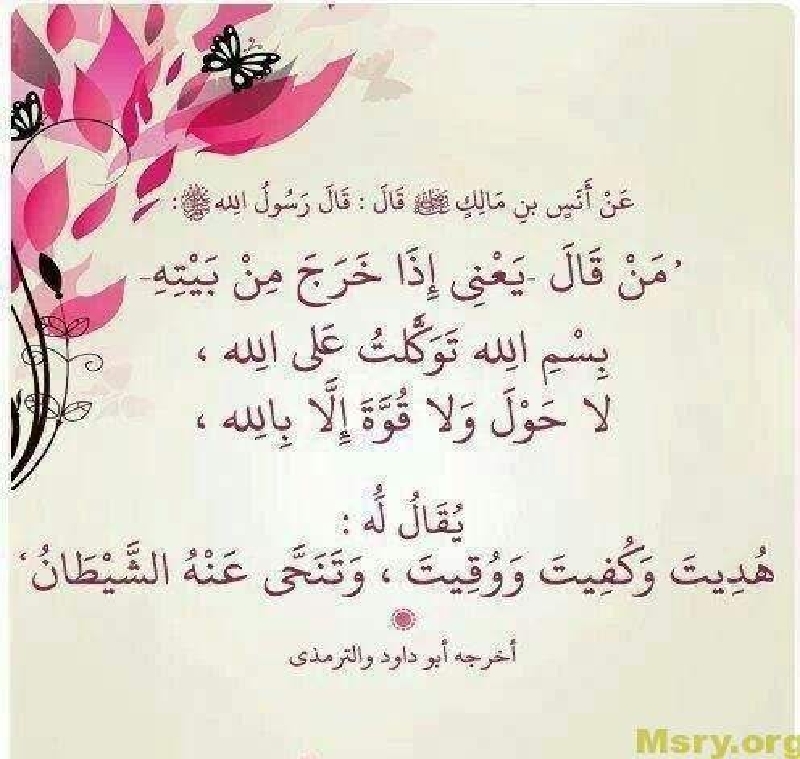 عَنْ أَنَسٍ بنِ مَالِكٍ ﵁ قَالَ : قَالَ رَسُولُ الله ﷺ :
'مَنْ قَالَ -يَعْنِى إِذَا خَرَجَ مِنْ بَيْتِهِ-
بِسْمِ الله تَوَكَّلتُ عَلى الله ،
لا حَوْلَ وَلا قُوَّةَ إِلَّا بِالله ،
يُقَالُ لَّه :
هُدِيتَ وَكُفِيتَ وَوُقِيتَ ، وَتَنَحَّى عَنْهُ الشَّيْطَانُ'
أخرجه أبو داود والترمذى
Msry.org